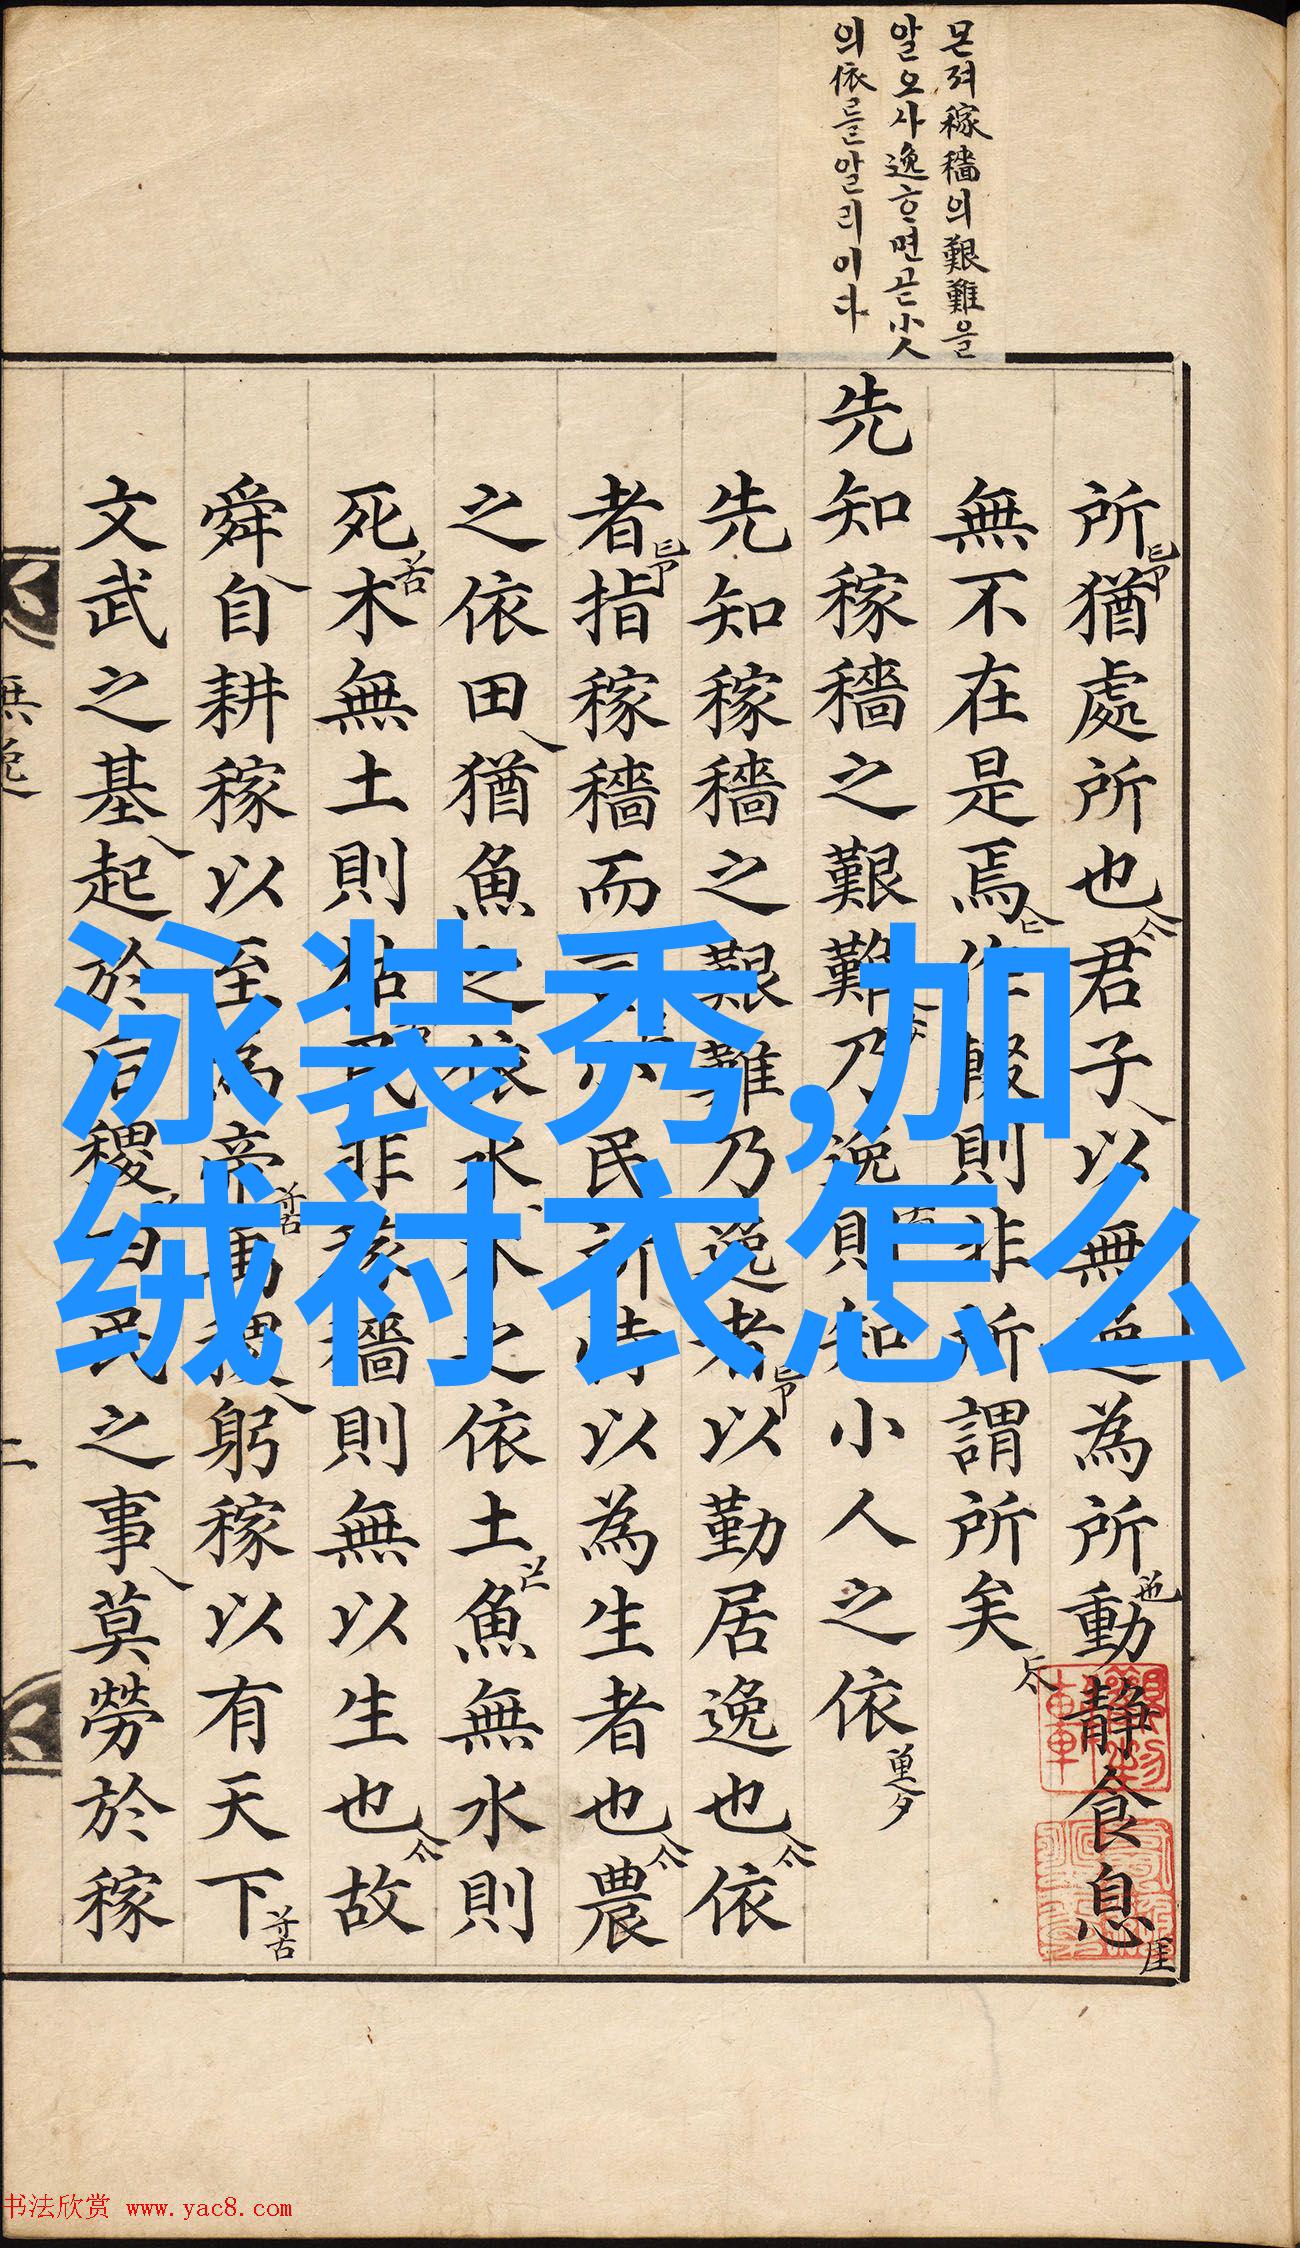 몬져稼穡의艱難을
알오사逸ᄒᆞ면곧小人
의依를알리이다
所猶處所也君子以無逸為所動静食息
無不在是焉作輟則非所謂所矣
先知稼穡之艱難乃逸則知小人之依
先知稼穡之艱難乃逸者以勤居逸也依
者指稼穡而言小民所恃以為生者也農
之依田猶魚之依水木之依土魚無水則
死木無土則枯民非稼穡則無以生也故
舜自耕稼以至為帝禹稷躬稼以有天下
文武之基起於后稷四民之事莫勞於稼
無逸
二
泳装秀,加
绒衬衣怎么
书法欣赏 www.yac8.com